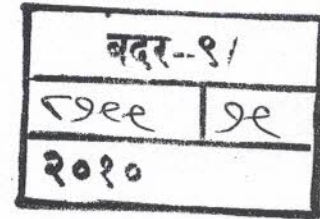 बदर--९/
८१९९ १९
२०१०